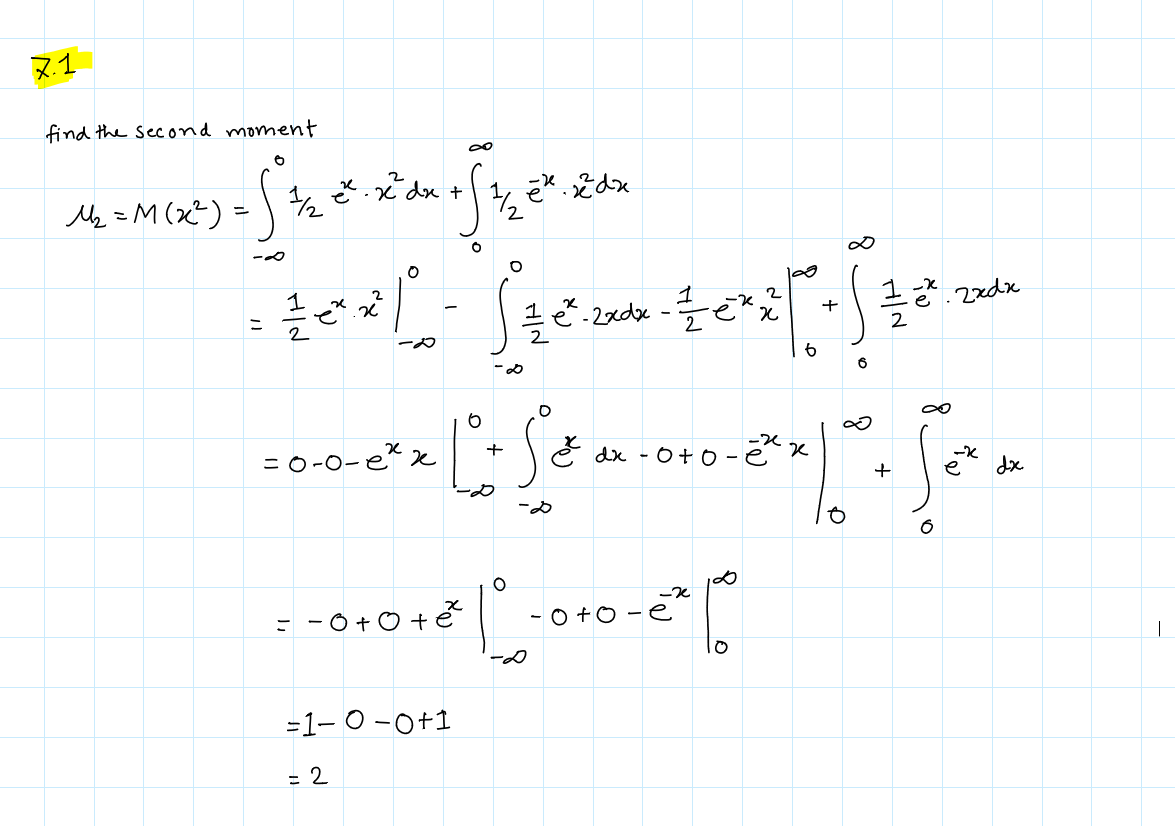 7.1
find the second moment
μ₂ = M(x²) = ∫_{-∞}^{0} 1/2 e^x · x² dx + ∫_{0}^{∞} 1/2 e^{-x} · x² dx
= 1/2 e^x · x² |_{-∞}^{0} - ∫_{-∞}^{0} 1/2 e^x · 2x dx - 1/2 e^{-x} x² |_{0}^{∞} + ∫_{0}^{∞} 1/2 e^{-x} · 2x dx
= 0 - 0 - e^x x |_{-∞}^{0} + ∫_{-∞}^{0} e^x dx - 0 + 0 - e^{-x} x |_{0}^{∞} + ∫_{0}^{∞} e^{-x} dx
= - 0 + 0 + e^x |_{-∞}^{0} - 0 + 0 - e^{-x} |_{0}^{∞}
= 1 - 0 - 0 + 1
= 2